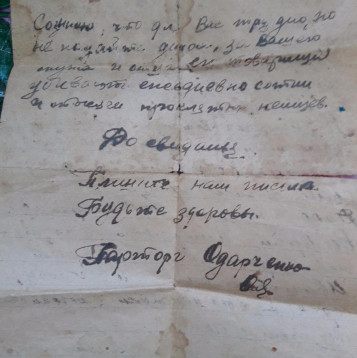 Сочиню, что для Вас трудно, но
не падайте духом, за Вашего
и товарищи
убивают ежедневно сотни
и тысячи проклятых немцев.
До свидания.
Пишите нам письма.
Будьте здоровы.
Парторг Одарченко